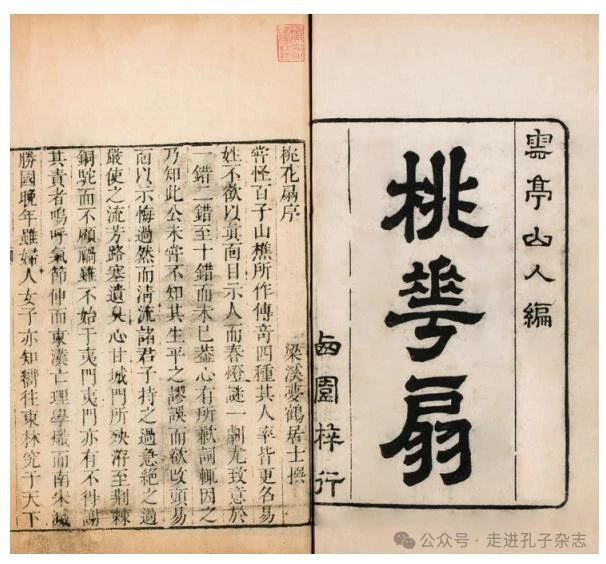 雲亭山人編
桃華扇
西園梓行
桃花扇序
梁溪夢鶴居士撰
嘗怪百子山樵所作傳奇四種其人率皆更名易
姓不欲以真面目示人而春燈謎一劇尤致意於
一錯二錯至十錯而未已蓋心有所歉詞輒因之
乃知此公未嘗不知其生平之謬誤而欲改頭易
面以示悔過然而清流諸君子持之過急絕之過
嚴使之流芳路塞遺臭心甘城門所殃洊至荊棘
銅駝而不顧禍雖不始于夷門夷門亦有不得謝
其責者嗚呼氣節伸而東漢亡理學熾而南宋滅
勝國晚年雖婦人女子亦知嚮往東林究于天下
公众号·走进孔子杂志